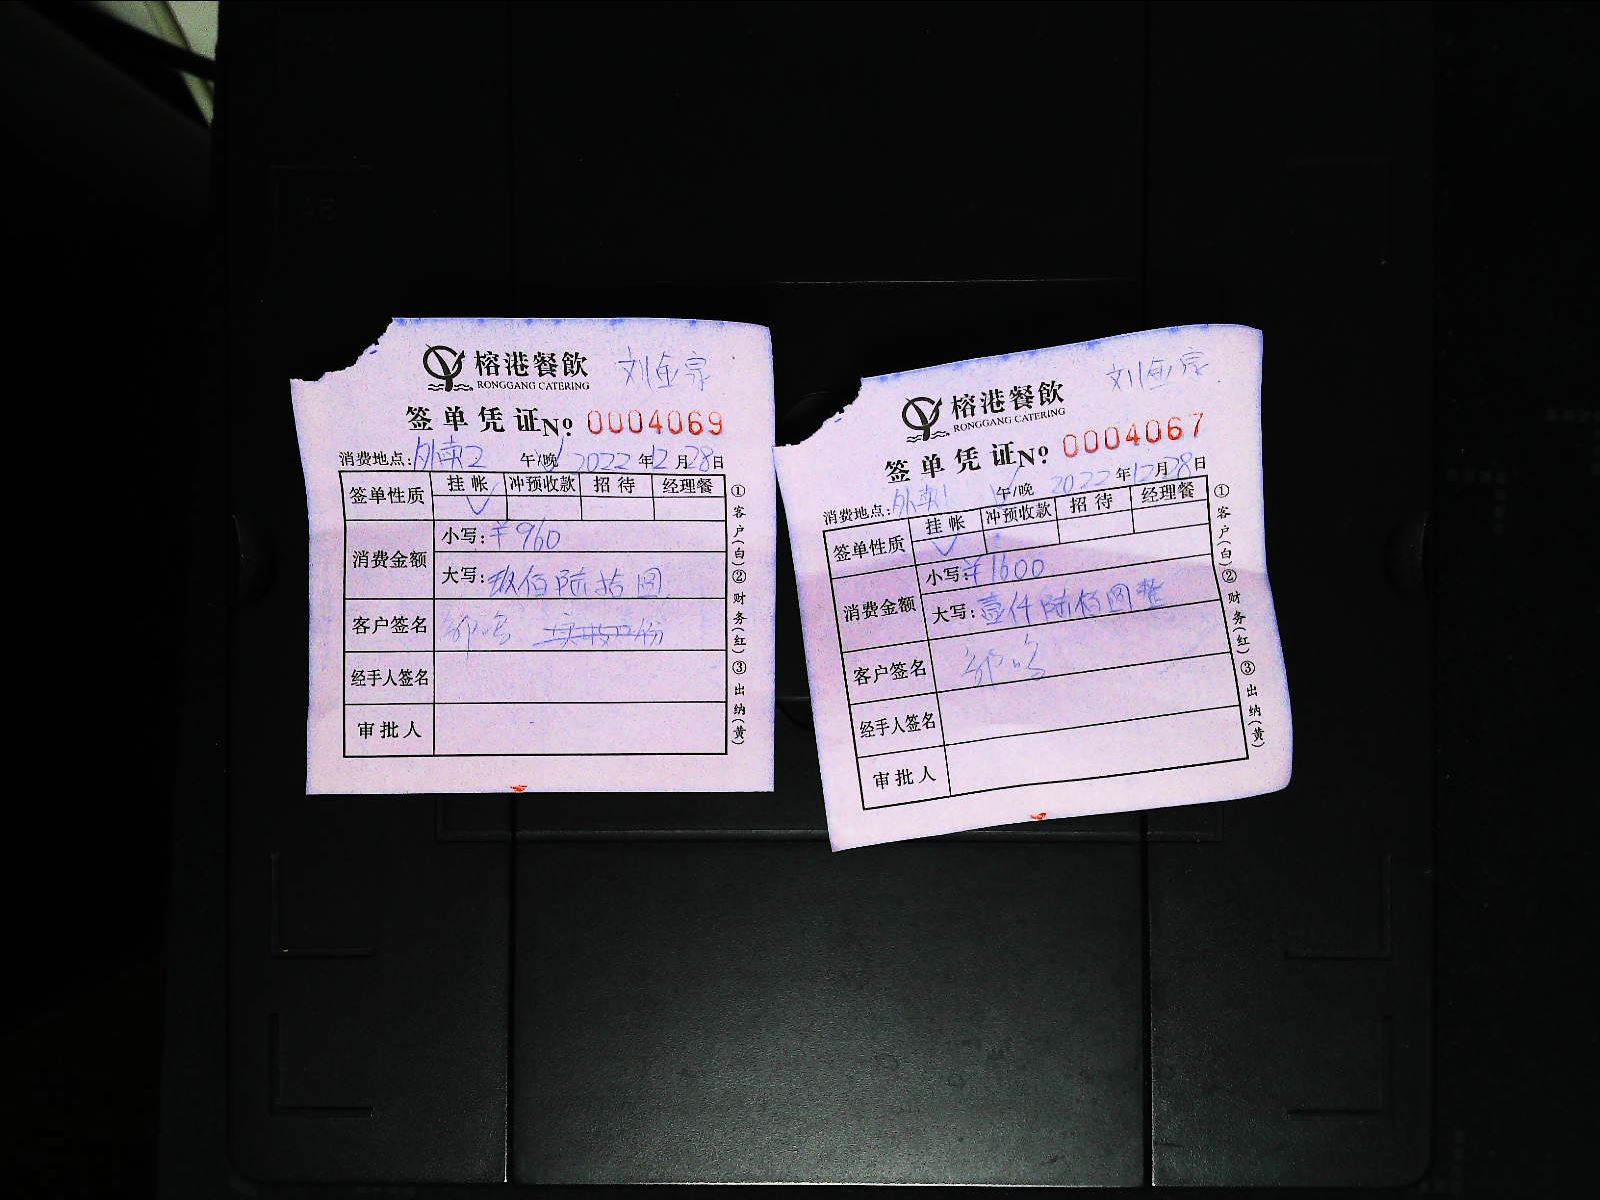 榕港餐飲 刘鱼家
RONGGANG CATERING
签单凭证 No 0004069
消费地点:外卖2 午/晚 2022年12月28日
签单性质 挂帐 冲预收款 招待 经理餐
✓
消费金额 小写:¥960
大写:玖佰陆拾圆
客户签名
经手人签名
审批人
①客户(白)②财务(红)③出纳(黄)
榕港餐飲 刘鱼家
RONGGANG CATERING
签单凭证 No 0004067
消费地点:外卖1 午/晚 2022年12月28日
签单性质 挂帐 冲预收款 招待 经理餐
✓
消费金额 小写:¥1600
大写:壹仟陆佰圆整
客户签名
经手人签名
审批人
①客户(白)②财务(红)③出纳(黄)